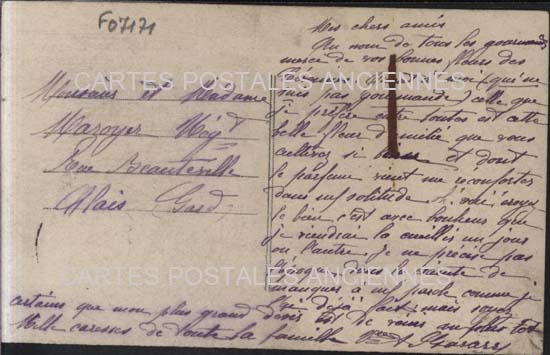 F07171
Mes chers amis
Au nom de tous les gourmands
merci de vos bonnes fleurs des
moi (qui ne
suis pas gourmande) celle que
je préfère entre toutes est cette
belle fleur d'amitié que vous
cultivez si et dont
le parfum vient me réconforter
dans ma solitude
le bien c'est avec bonheur que
je viendrai la cueillir un jour
ou l'autre je ne précise pas
l'époque dans la crainte de
manquer à ma parole comme je
l'ai déjà fait mais soyez
certains que mon plus grand désir est de vous au plus tôt
Mille caresses de toute la famille
Monsieur et Madame
Mazoyer Nég^t
Rue Beauteville
Alais Gard
CARTES POSTALES ANCIENNES
CARTES POSTALES ANCIENNES